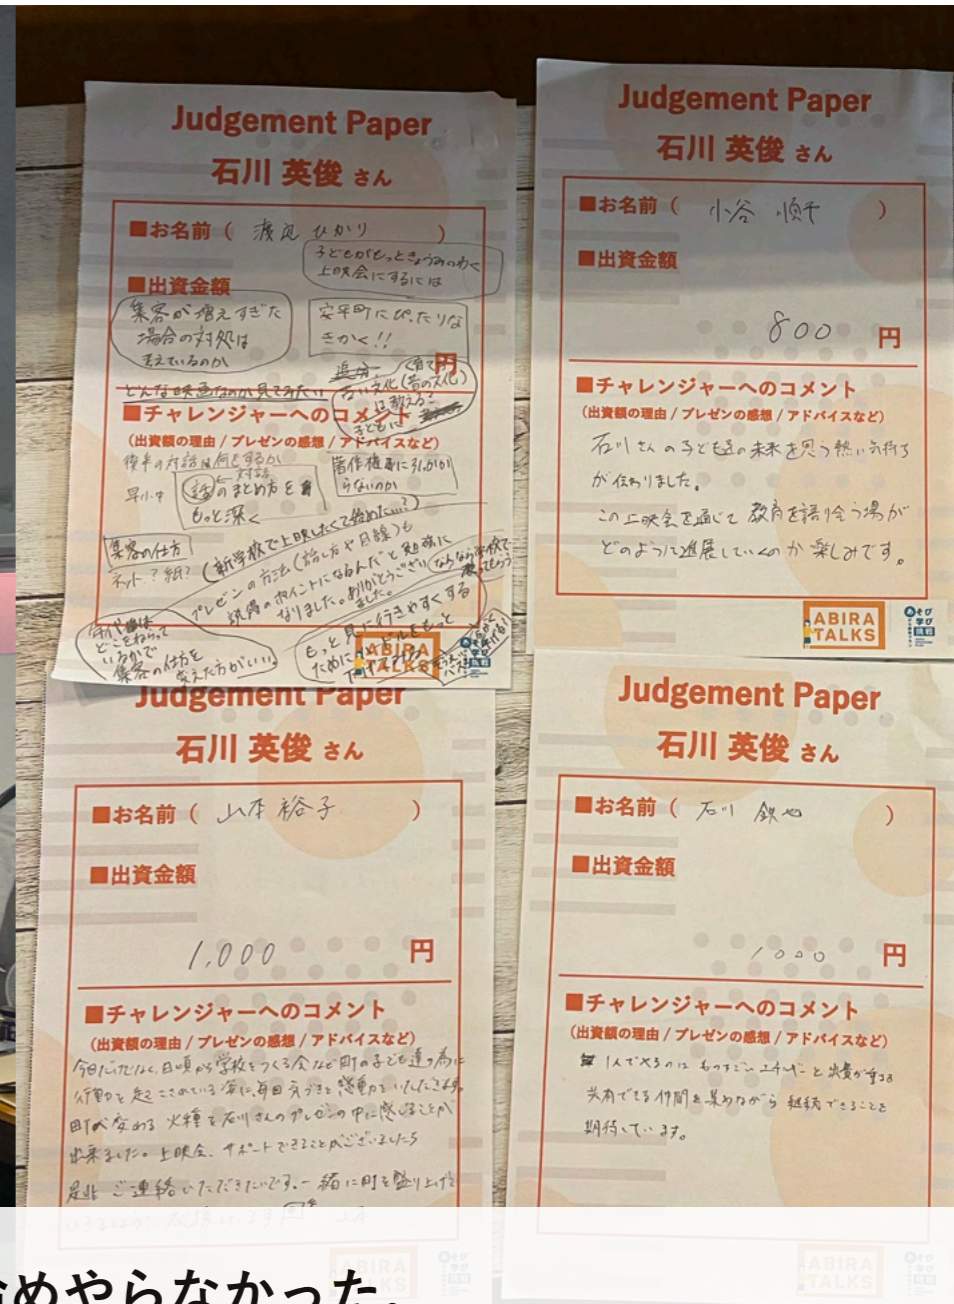 Judgement Paper
石川 英俊 さん
■お名前（ 渡辺 ひかり ）
子どもがもっときょうみのわく
上映会にするには
■出資金額
集客が増えすぎた
場合の対処は
考えているのか
安平町にぴったりな
きかく!!
円
どんな映画なのか見てみたい
古い文化(昔の文化)
子どもに
■チャレンジャーへのコメント
（出資額の理由 / プレゼンの感想 / アドバイスなど）
後半の対話は何をするか
対話
話のまとめ方を
もっと深く
著作権恵に引っかか
らないのか
集客の仕方
ネット？紙？
(新学校で上映したくて始めた…?)
プレゼンの方法(話し方や目線)も
説得のポイントになるんだと勉強に
なりました。ありがとうござい
ました。
年代は
どこをねらって
いるかで
集客の仕方を
変えた方がいい。
もっと見に行きやすくする
ために
ABIRA
TALKS
Judgement Paper
石川 英俊 さん
■お名前（ 小谷 ）
■出資金額
800 円
■チャレンジャーへのコメント
（出資額の理由 / プレゼンの感想 / アドバイスなど）
石川さんの子ども達の未来を思う熱い気持ち
が伝わりました。
この上映会を通じて 教育を語り合う場が
どのように進展していくのか楽しみです。
ABIRA
TALKS
あそび
学び
挑戦
Judgement Paper
石川 英俊 さん
■お名前（ 山本 裕子 ）
■出資金額
1,000 円
■チャレンジャーへのコメント
（出資額の理由 / プレゼンの感想 / アドバイスなど）
今日だけでなく、日頃から学校をつくる会など町の子ども達の為に
行動を起こされている姿に、毎回気づきと感動をいただきます。
町が変わる 火種を石川さんのプレゼンの中に感じることが
出来ました。上映会、サポートできることがございましたら
是非 ご連絡いただきたいです。一緒に町を盛り上げて
ABIRA
TALKS
Judgement Paper
石川 英俊 さん
■お名前（ 石川 鉄也 ）
■出資金額
1000 円
■チャレンジャーへのコメント
（出資額の理由 / プレゼンの感想 / アドバイスなど）
1人でやるのは ものすごいエネルギーと
共有できる仲間を集めながら 継続できることを
期待しています。
ABIRA
TALKS
めやらなかった。